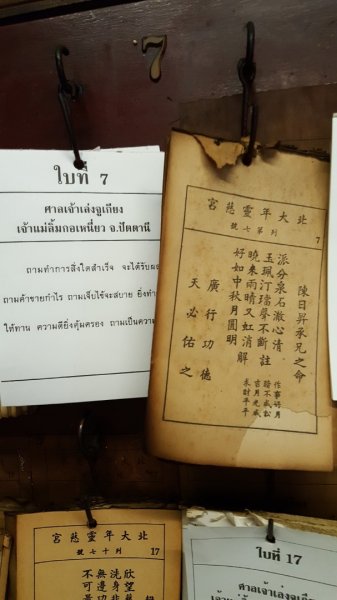 7
ใบที่ 7
ศาลเจ้าเล่งจูเกียง
เจ้าแม่ลิ้มกอเหนี่ยว จ.ปัตตานี
ถามทำการสิ่งใดสำเร็จ จะได้รับผล
ถามค้าขายกำไร ถามเจ็บไข้จะสบาย ยิ่งทำ
ให้ทาน ความดียิ่งคุ้มครอง ถามเป็นความ
北大年靈慈宮
列第七號
7
陳日昇承兄之命
派分泉石澈心清
玉珮汀璫聲不斷註
曉來雨晴又虹消解
好如中秋月圓明
廣行功德
天必佑之
北大年靈慈宮
列十七號
17
欣望
洗身
無邊
不可
ใบที่ 17
ศาลเจ้าเล่งจูเกียง